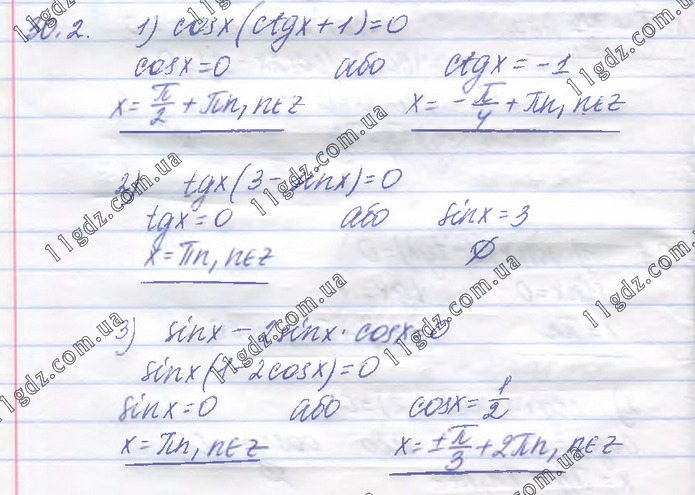 30.2. 1) cosx(ctgx+1)=0
cosx=0 або ctgx=-1
x=π/2+πn, n∈Z x=-π/4+πn, n∈Z
2) tgx(3-sinx)=0
tgx=0 або sinx=3
x=πn, n∈Z ∅
3) sinx-2sinx·cosx=0
sinx(1-2cosx)=0
sinx=0 або cosx=1/2
x=πn, n∈Z x=±π/3+2πn, n∈Z
11gdz.com.ua
11gdz.com.ua
11gdz.com.ua
11gdz.com.ua
11gdz.com.ua
11gdz.com.ua
11gdz.com.ua
11gdz.com.ua